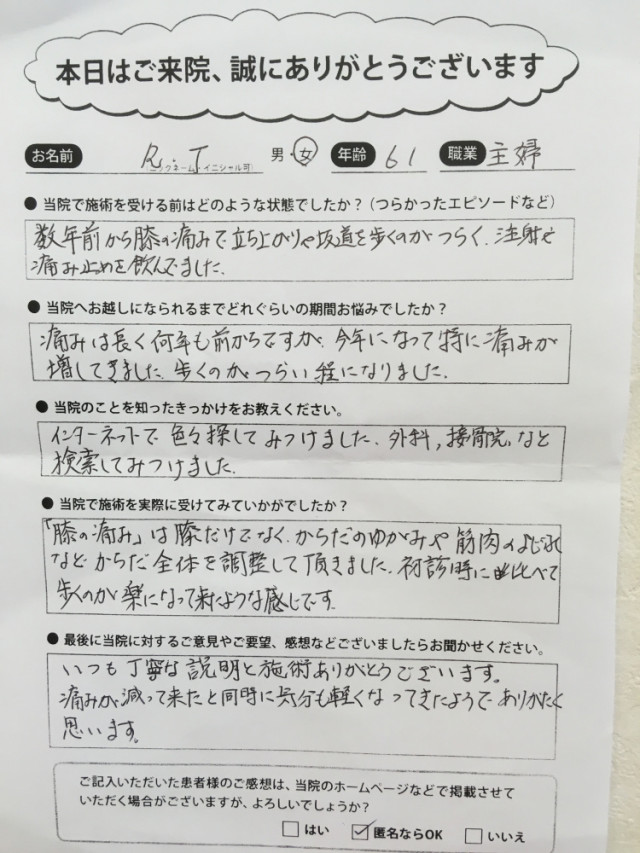 本日はご来院、誠にありがとうございます
お名前 R.T (ニックネーム・イニシャル可) 男・女 年齢 61 職業 主婦
● 当院で施術を受ける前はどのような状態でしたか?(つらかったエピソードなど)
数年前から膝の痛みで立ち上がりや坂道を歩くのがつらく、注射や
痛み止めを飲んでました。
● 当院へお越しになられるまでどれぐらいの期間お悩みでしたか?
痛みは長く何年も前からですが、今年になって特に痛みが
増してきました。歩くのがつらい程になりました。
● 当院のことを知ったきっかけをお教えください。
インターネットで色々探してみつけました。外科,接骨院,など
検索してみつけました。
● 当院で施術を実際に受けてみていかがでしたか?
「膝の痛み」は膝だけでなく、からだのゆがみや筋肉のよじれ
などからだ全体を調整して頂きました。初診時に比べて
歩くのが楽になって来たような感じです。
● 最後に当院に対するご意見やご要望、感想などございましたらお聞かせください。
いつも丁寧な説明と施術ありがとうございます。
痛みが減って来たと同時に気分も軽くなってきたようでありがたく
思います。
ご記入いただいた患者様のご感想は、当院のホームページなどで掲載させて
いただく場合がございますが、よろしいでしょうか?
□はい ☑匿名ならOK □いいえ